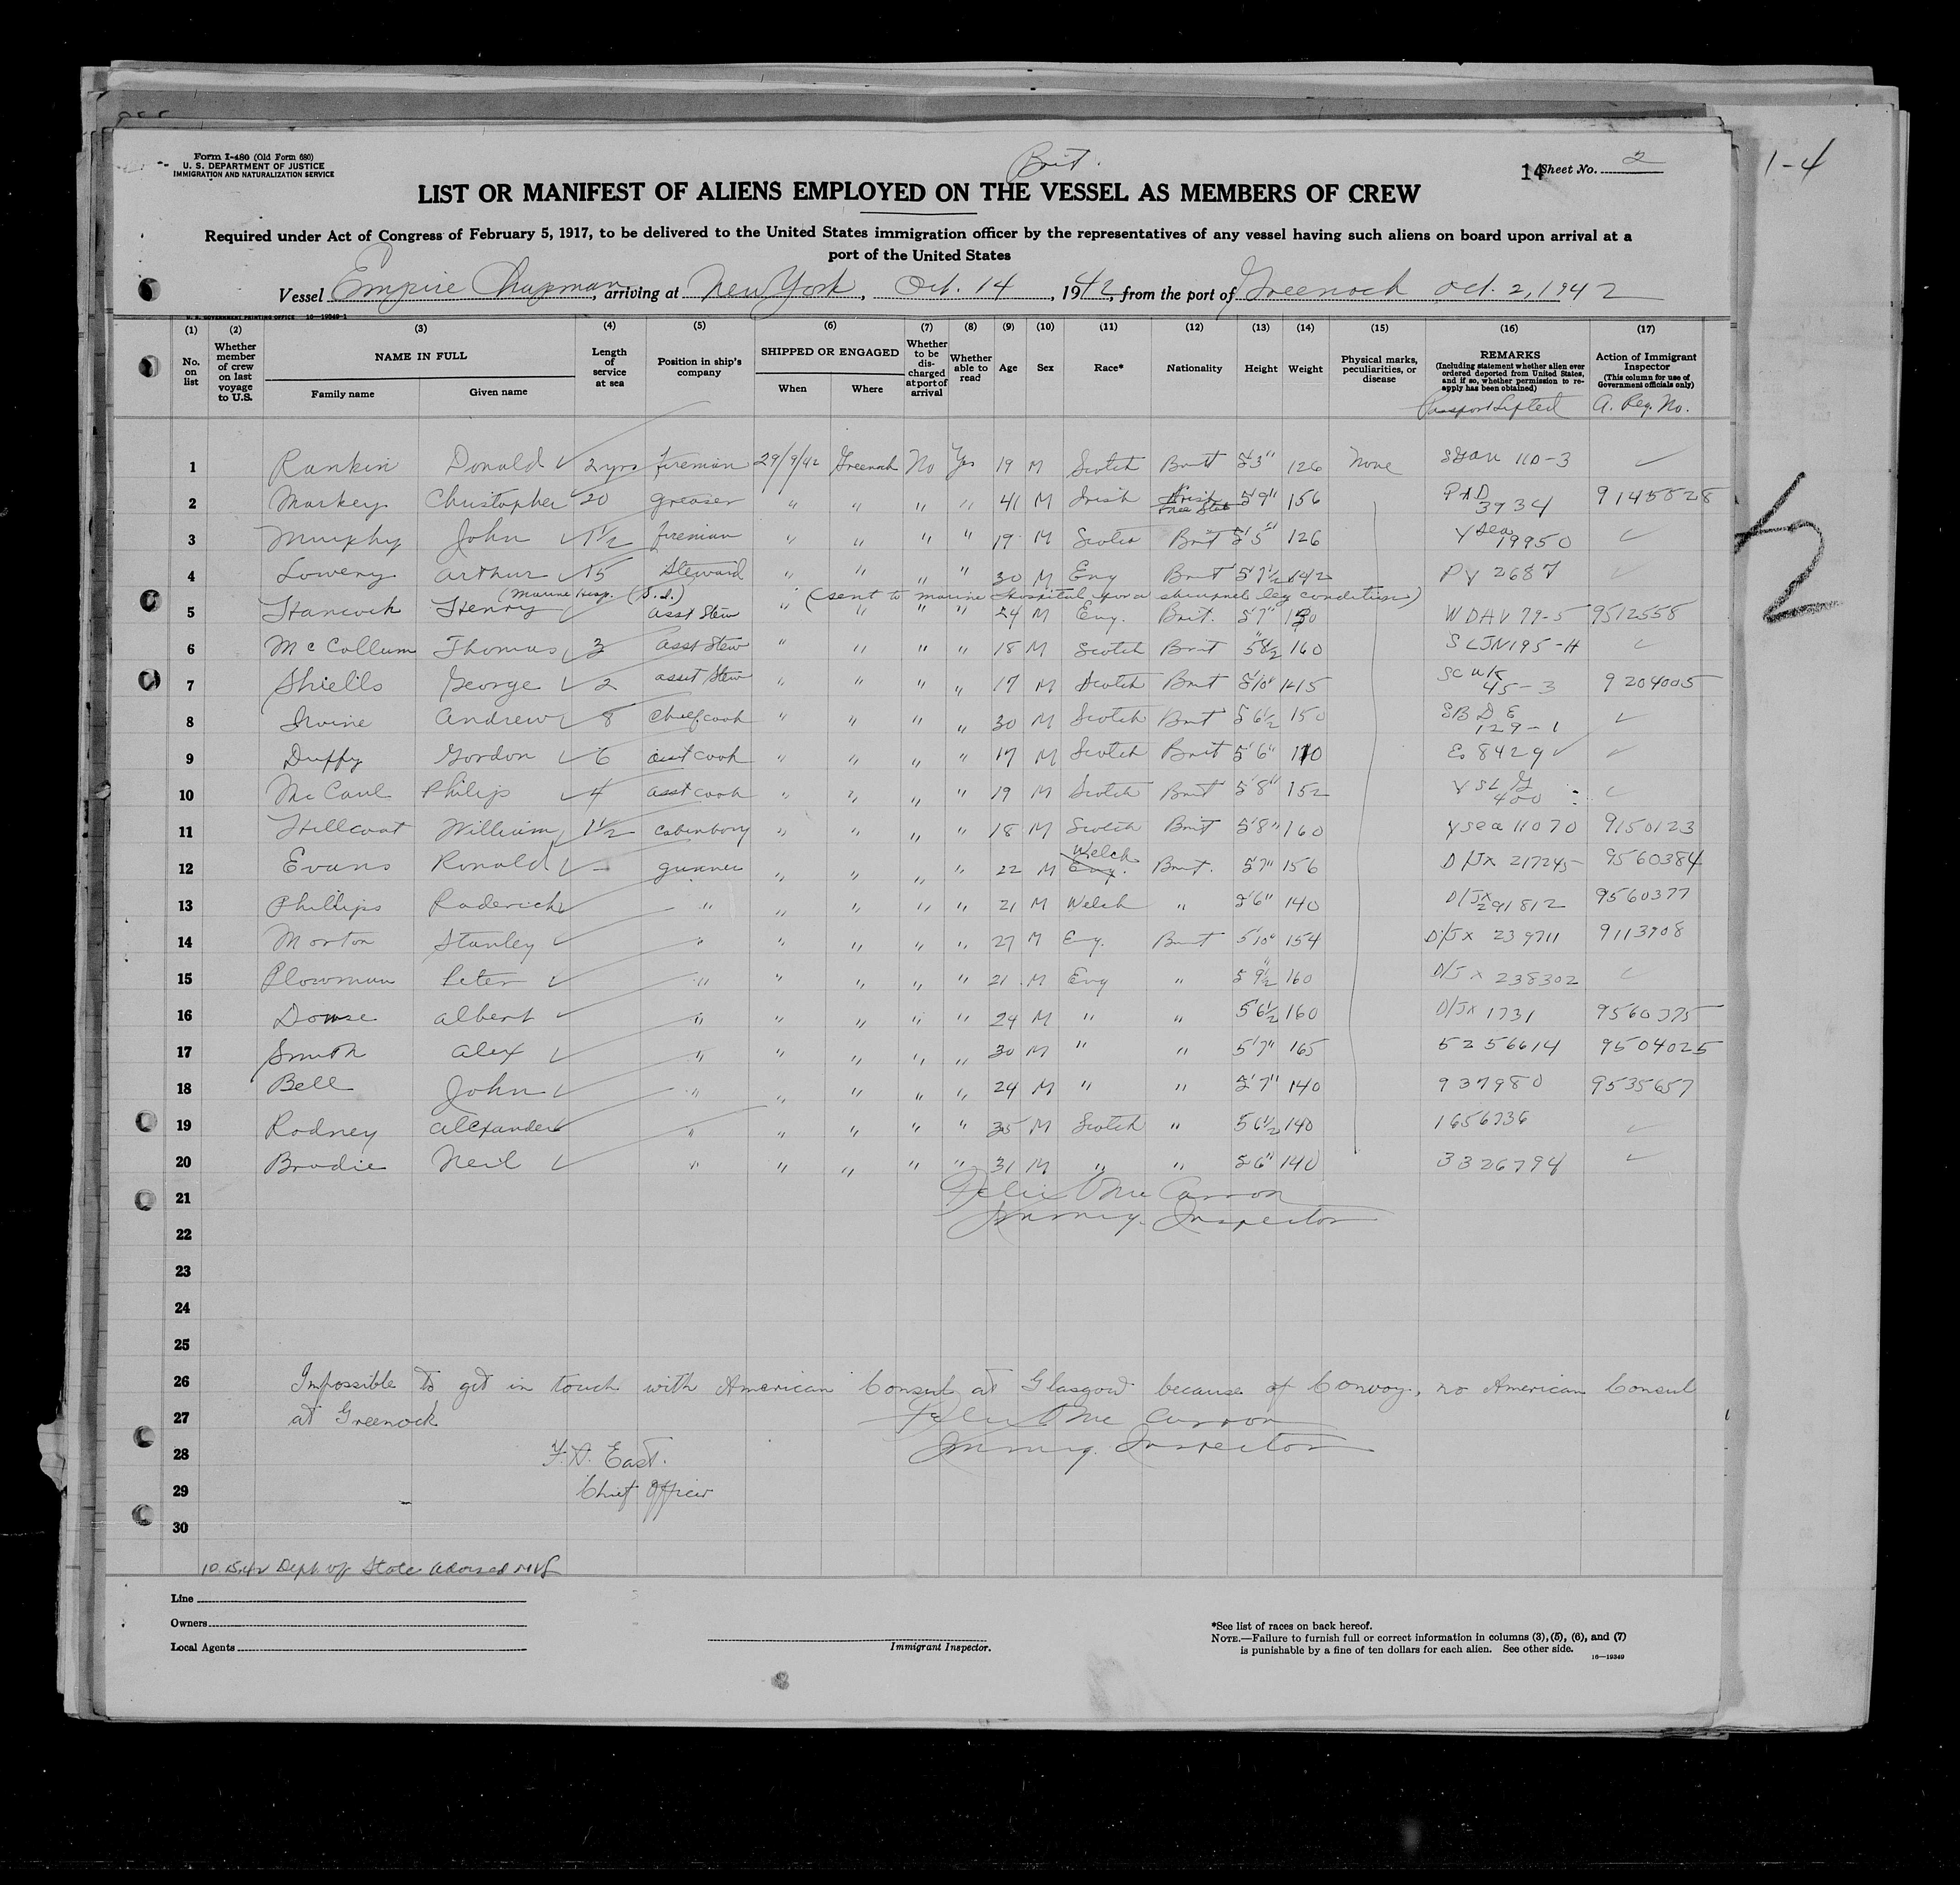 Form I-480 (Old Form 680)
U. S. DEPARTMENT OF JUSTICE
IMMIGRATION AND NATURALIZATION SERVICE
Brit.
14 Sheet No. 2
1-4
LIST OR MANIFEST OF ALIENS EMPLOYED ON THE VESSEL AS MEMBERS OF CREW
Required under Act of Congress of February 5, 1917, to be delivered to the United States immigration officer by the representatives of any vessel having such aliens on board upon arrival at a
port of the United States
Vessel Empire Chapman, arriving at New York, Oct. 14, 1942, from the port of Greenock Oct. 2, 1942
U. S. GOVERNMENT PRINTING OFFICE 16—19349-1
(1) (2) (3) (4) (5) (6) (7) (8) (9) (10) (11) (12) (13) (14) (15) (16) (17)
No. on list
Whether member of crew on last voyage to U.S.
NAME IN FULL
Family name
Given name
Length of service at sea
Position in ship's company
SHIPPED OR ENGAGED
When
Where
Whether to be discharged at port of arrival
Whether able to read
Age
Sex
Race*
Nationality
Height
Weight
Physical marks, peculiarities, or disease
REMARKS
(Including statement whether alien ever ordered deported from United States, and if so, whether permission to re-apply has been obtained)
Passport Lifted
Action of Immigrant Inspector
(This column for use of Government officials only)
A. Reg. No.
1 Rankin Donald ✓ 2 yrs fireman 29/9/42 Greenock No Yes 19 M Scotch Brit 5'3" 126 None SDAU 110-3 ✓
2 Markey Christopher 20 greaser " " " " 41 M Irish Irish Free State 5'9" 156 PAD 3934 9145828
3 Murphy John ✓ 1½ fireman " " " " 19 M Scotch Brit 5'5" 126 Y Sea 19950 ✓
4 Lowery Arthur ✓ 15 Steward " " " " 30 M Eng Brit 5'7½ 142 PY 2687 ✓
(Marine Hosp. (S.I.) (sent to marine hospital upon a shrapnel leg condition)
5 Hancock Henry ✓ asst Stew " " " " 24 M Eng. Brit. 5'7" 130 WDAV 79-5 9512558
6 McCollum Thomas ✓ 3 asst Stew " " " " 18 M Scotch Brit 5'8½ 160 SLJN195-H ✓
7 Shiells George ✓ 2 asst Stew " " " " 17 M Scotch Brit 5'10" 145 SCWK 45-3 9204005
8 Irvine Andrew ✓ 8 Chief cook " " " " 30 M Scotch Brit 5'6½ 150 SBDE 129-1 ✓
9 Duffy Gordon ✓ 6 asst cook " " " " 17 M Scotch Brit 5'6" 110 Eo 8429 ✓ ✓
10 McCaul Philip ✓ 4 asst cook " " " " 19 M Scotch Brit 5'8" 152 YSLG 400 ✓
11 Hillcoat William ✓ 1½ cabinboy " " " " 18 M Scotch Brit 5'8" 160 Ysea 11070 9150123
12 Evans Ronald ✓ - gunner " " " " 22 M Welch Eng. Brit. 5'7" 156 D/JX 217245 9560384
13 Phillips Roderick ✓ " " " " " 21 M Welch " 5'6" 140 D/JX 291812 9560377
14 Morton Stanley ✓ " " " " " 27 M Eng. Brit 5'10" 154 D/JX 239711 9113908
15 Plowman Peter ✓ " " " " " 21 M Eng " 5'9½ 160 D/JX 238302 ✓
16 Dowse Albert ✓ " " " " " 24 M " " 5'6½ 160 D/JX 1731 9560375
17 Smith Alex ✓ " " " " " 30 M " " 5'7" 165 5256614 9504025
18 Bell John ✓ " " " " " 24 M " " 5'7" 140 937980 9535657
19 Rodney Alexander ✓ " " " " " 35 M Scotch " 5'6½ 140 1656736 ✓
20 Brodie Neil ✓ " " " " " 31 M " " 5'6" 140 3326794 ✓
21 Felix McCarron
22 Immig. Inspector
23
24
25
26 Impossible to get in touch with American Consul at Glasgow because of Convoy, no American Consul
27 at Greenock Felix McCarron
28 F.A. East. Immig. Inspector
29 Chief Officer
30
10.15.42 Dept of State advised
Line
Owners
Local Agents
Immigrant Inspector.
*See list of races on back hereof.
NOTE.—Failure to furnish full or correct information in columns (3), (5), (6), and (7)
is punishable by a fine of ten dollars for each alien. See other side.
16—19349